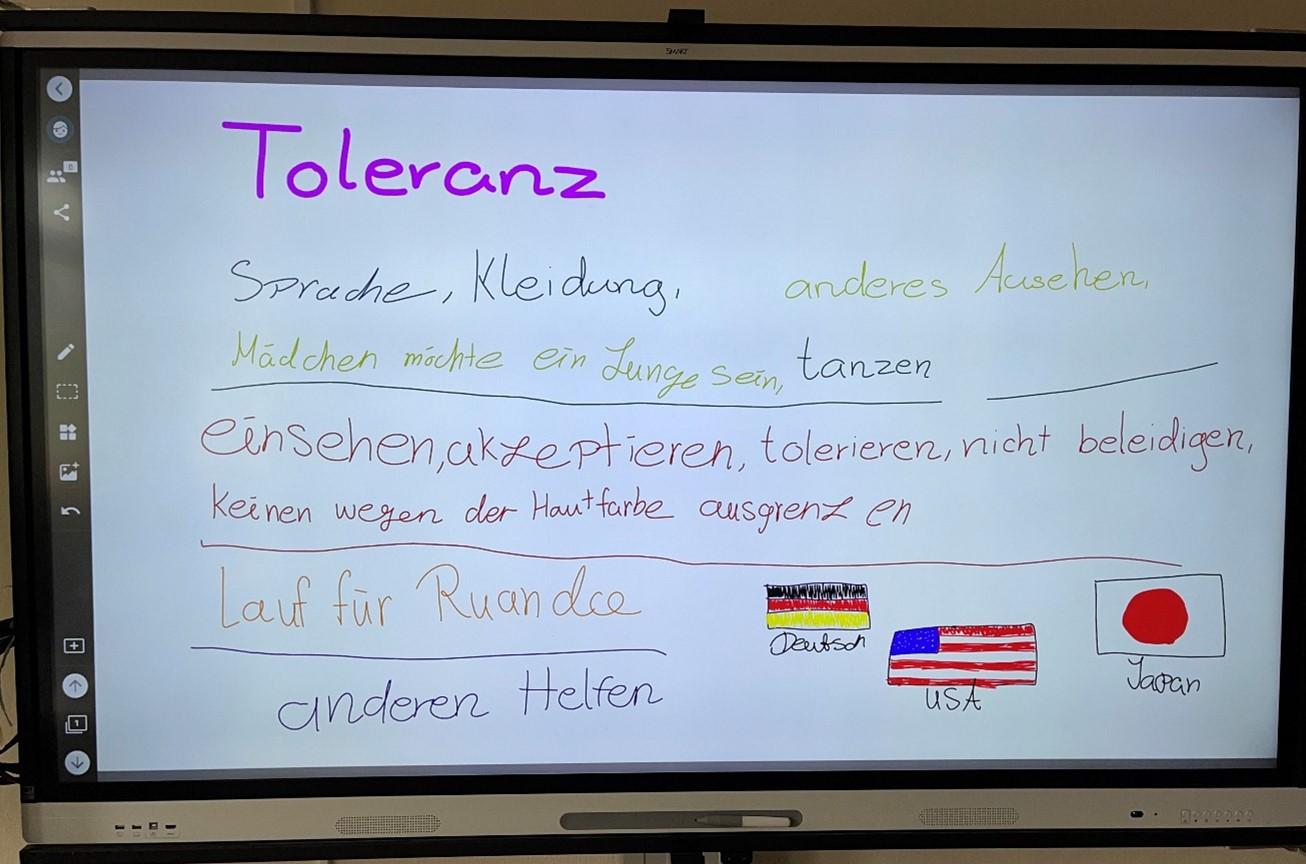 SMART
Toleranz
Sprache, Kleidung, anderes Aussehen,
Mädchen möchte ein Junge sein, tanzen
einsehen, akzeptieren, tolerieren, nicht beleidigen,
keinen wegen der Hautfarbe ausgrenzen
Lauf für Ruanda
Deutsch
USA
Japan
anderen Helfen